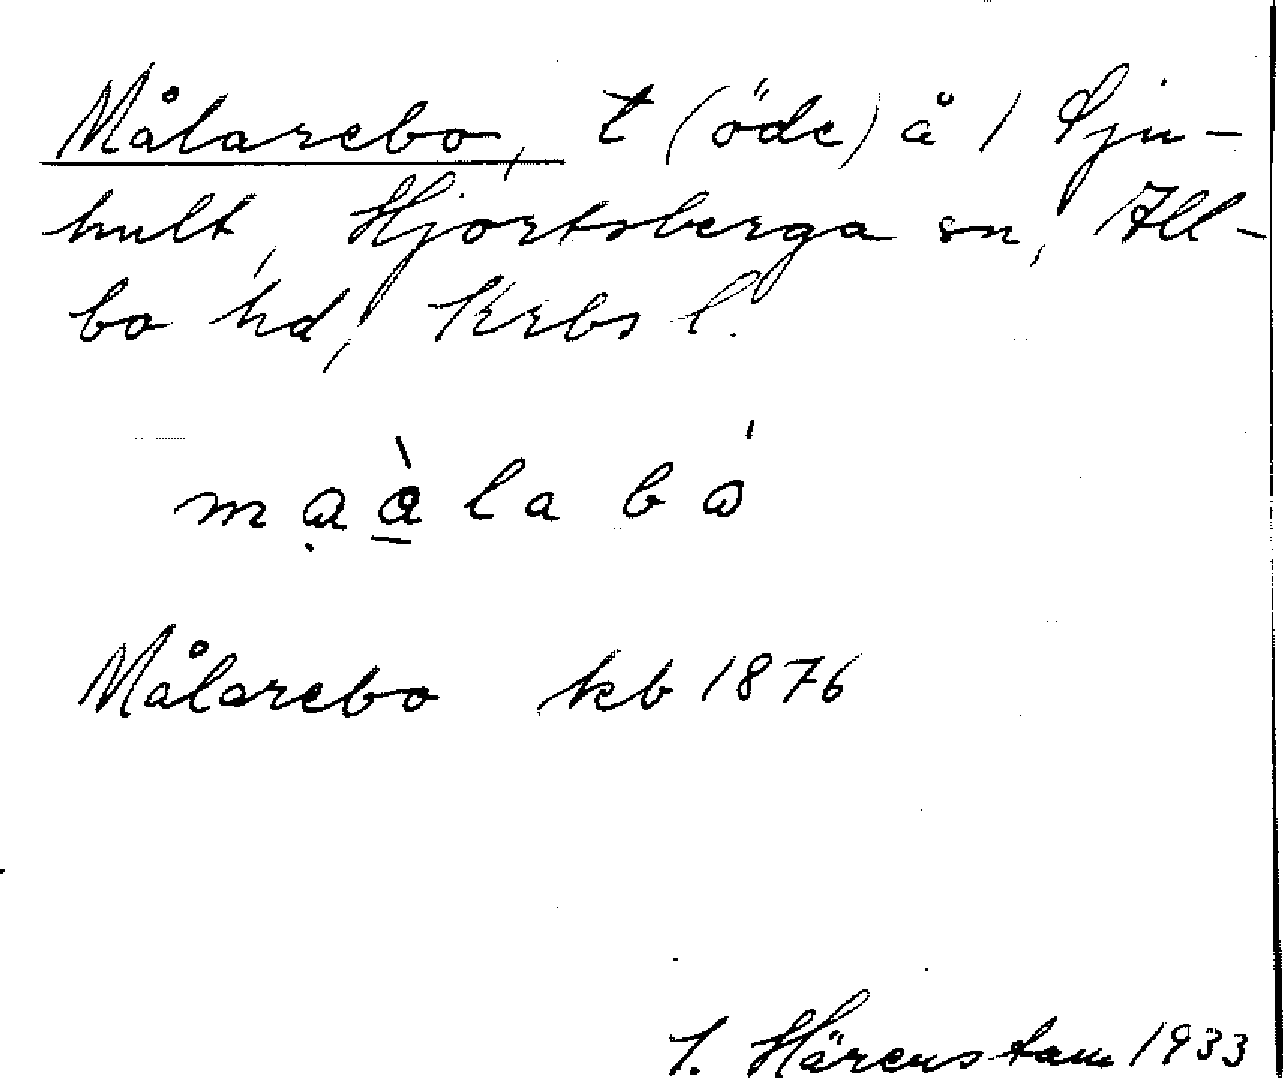 Målarebo, t (öde) å 1 Sju-
hult, Hjortsberga sn, All-
bo hd, Krbs l.
mạàlabó
Målarebo kb 1876
Härenstam 1933